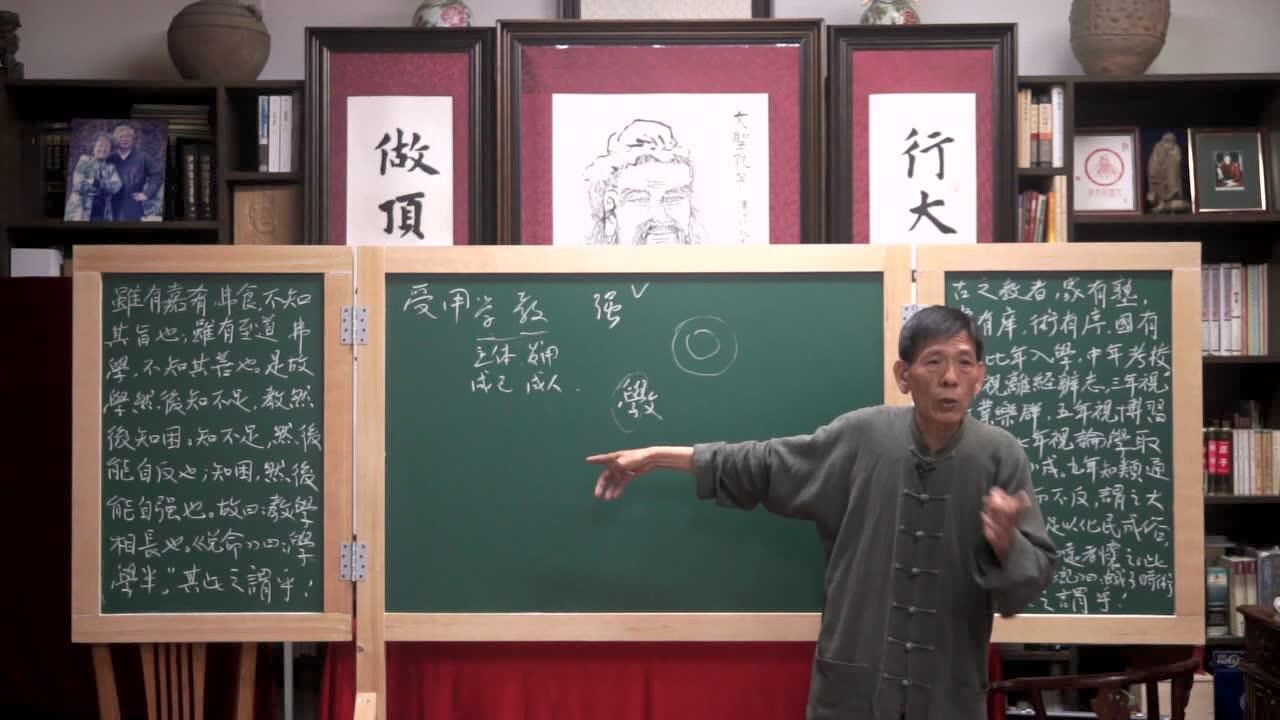 做
頂
大聖孔子
行
大
雖有嘉肴,弗食,不知
其旨也;雖有至道,弗
學,不知其善也。是故
學然後知不足,教然
後知困。知不足,然後
能自反也;知困,然後
能自强也。故曰:教學
相長也。《兌命》曰:“學
學半。”其此之謂乎!
受用学教
主体
成己 成人.
强
斆
古之教者,家有塾,
有庠,術有序,國有
比年入學,中年考校
視離經辨志,三年視
業樂群,五年視博習
七年視論學取
小成。九年知類通
而不反,謂之大
足以化民成俗,
遠者懷之。此
記》曰:蛾子時術
之謂乎!
庄子